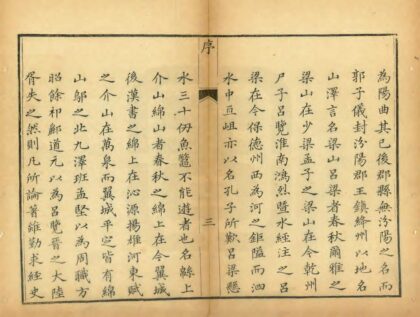 為陽曲其已後郡縣無汾陽之名而
郭子儀封汾陽郡王鎮絳州以地名
山澤言名梁山呂梁者春秋爾雅之
梁山在少梁孟子之梁山在今乾州
尸子呂覽淮南鴻烈暨水經注之呂
梁在今保德州西為河之鉅隘而泗
水中亘岨亦以名孔子所歎呂梁懸
序
三
水三十仞魚鼈不能遊者也名緜上
介山綿山者春秋之綿上在今翼城
後漢書之綿上在沁源揚雄河東賦
之介山在萬泉而翼城平定皆有綿
山鄔之北九澤班孟堅以為周職方
昭餘祁酈道元以為呂覽晉之大陸
胥失之然則凡所論著雖勤求經史